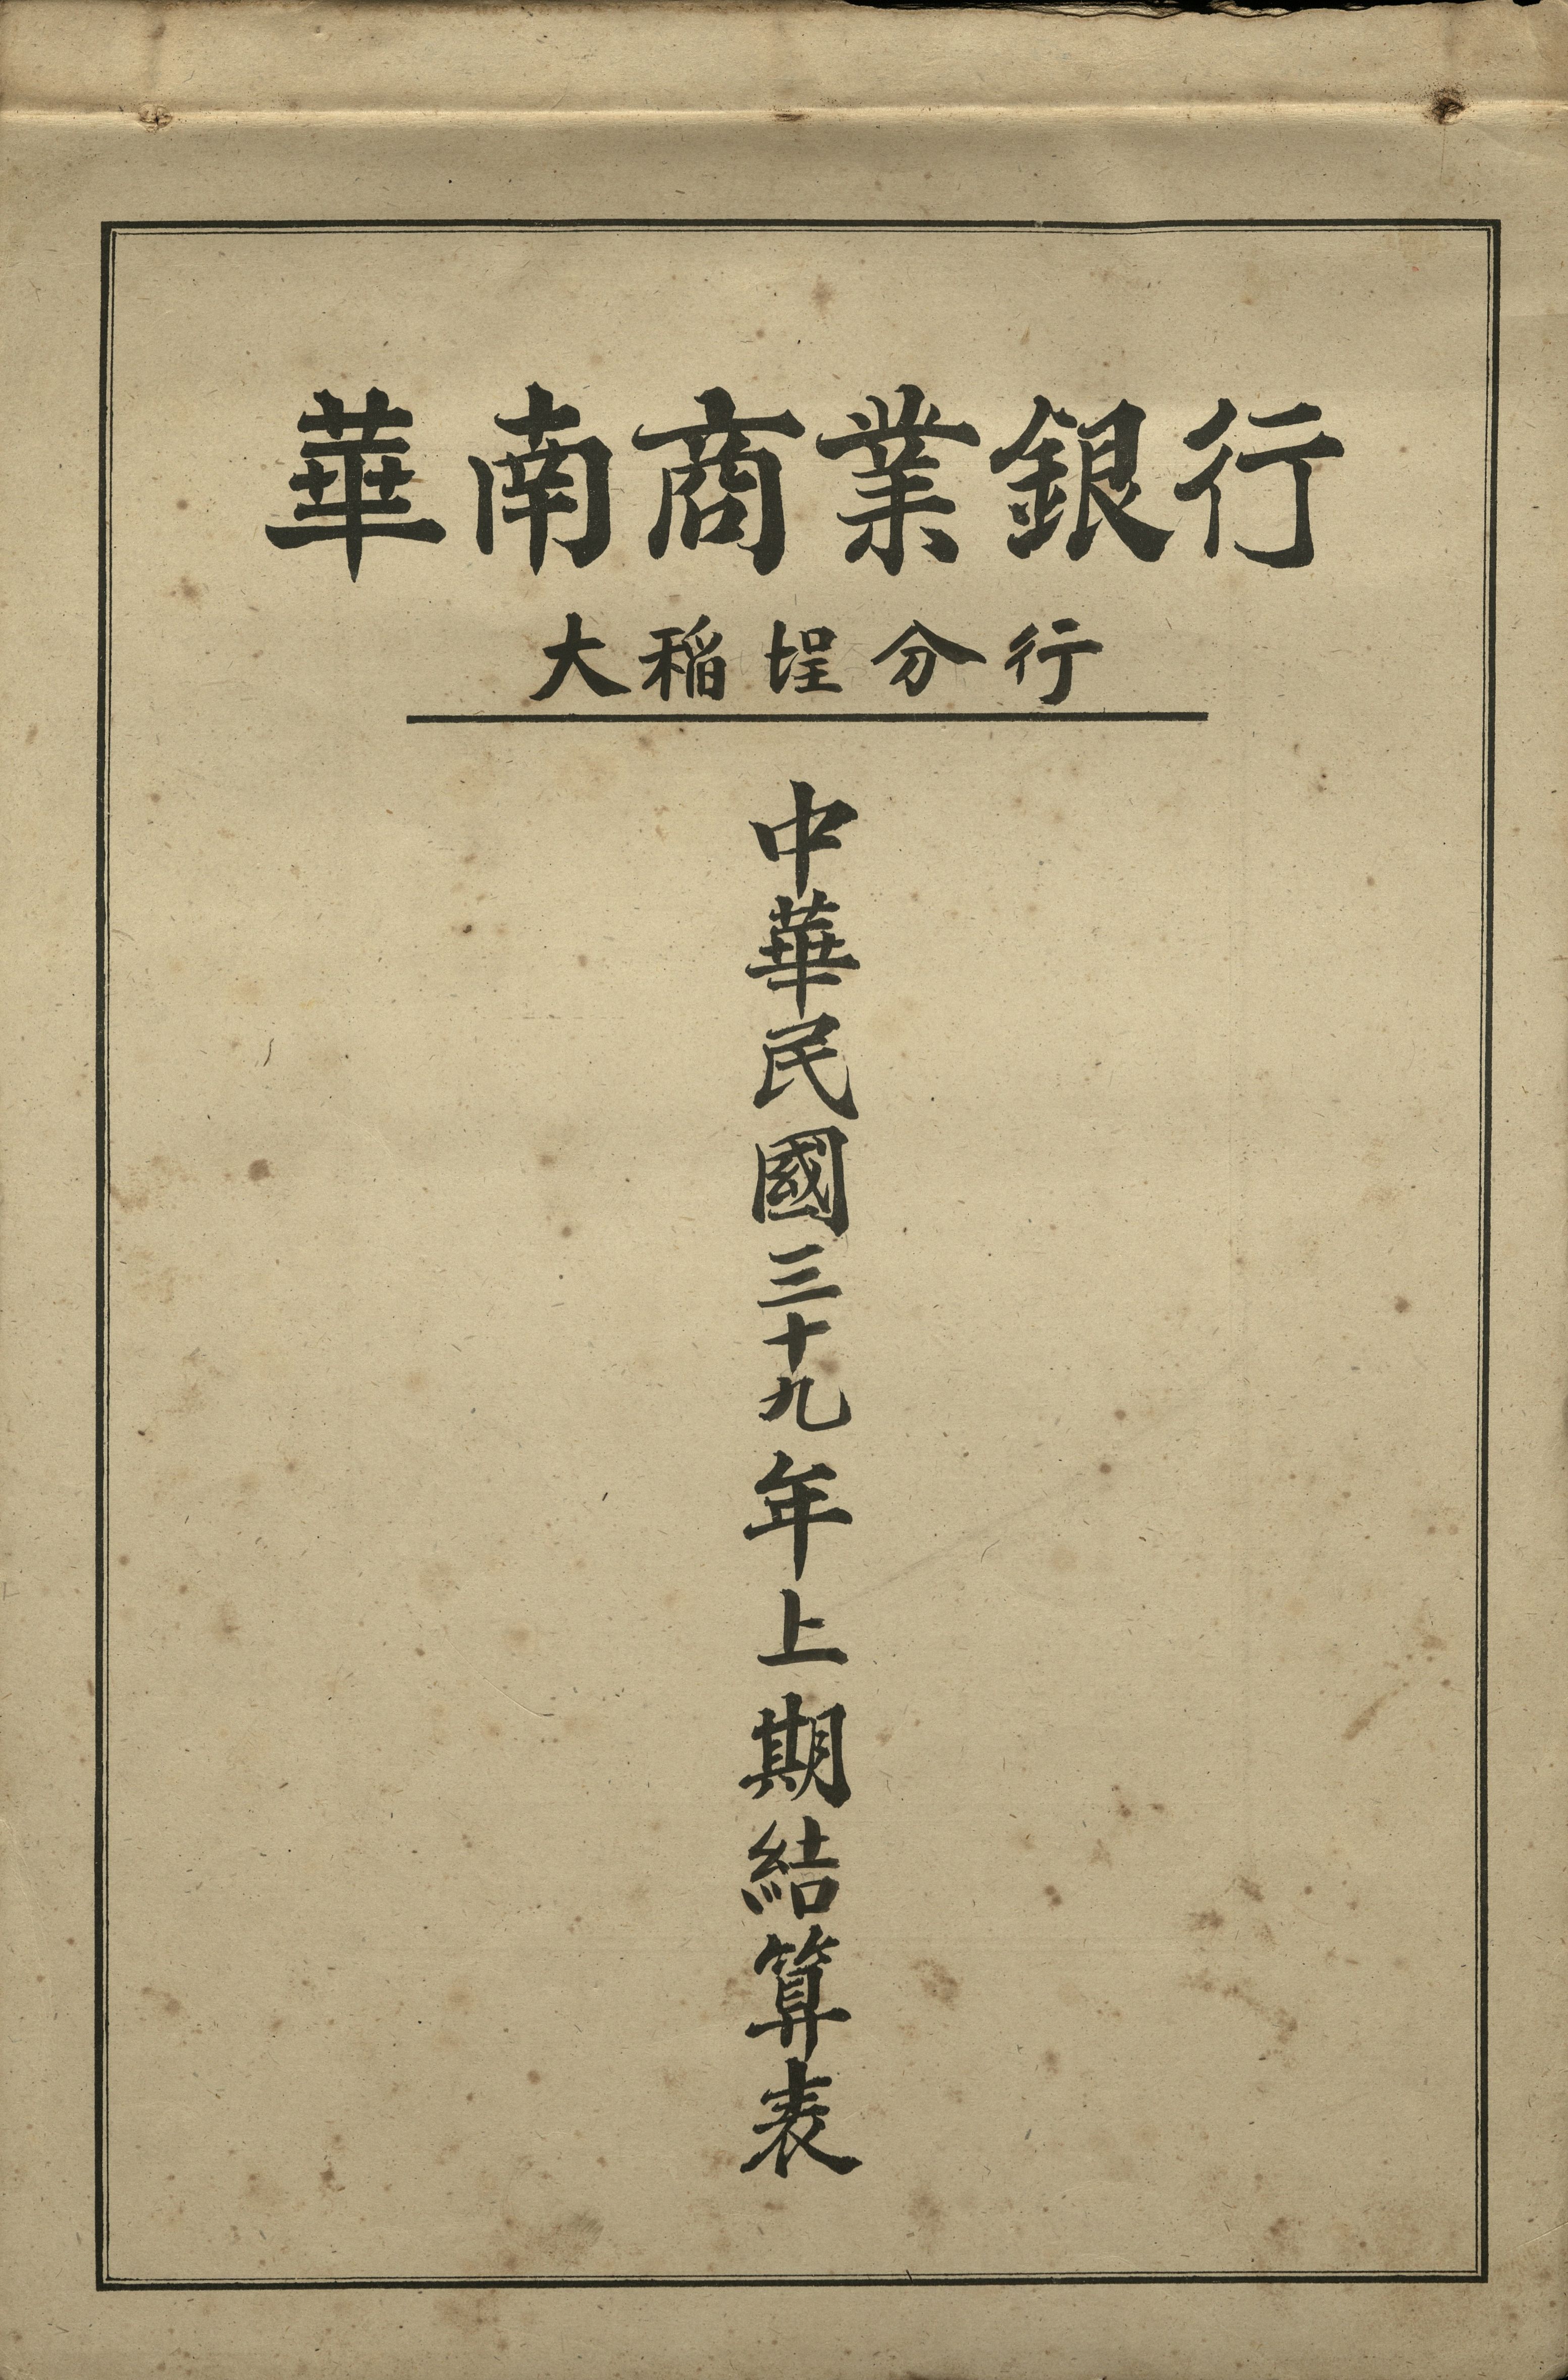 華南商業銀行
大稻埕分行
中華民國三十九年上期結算表